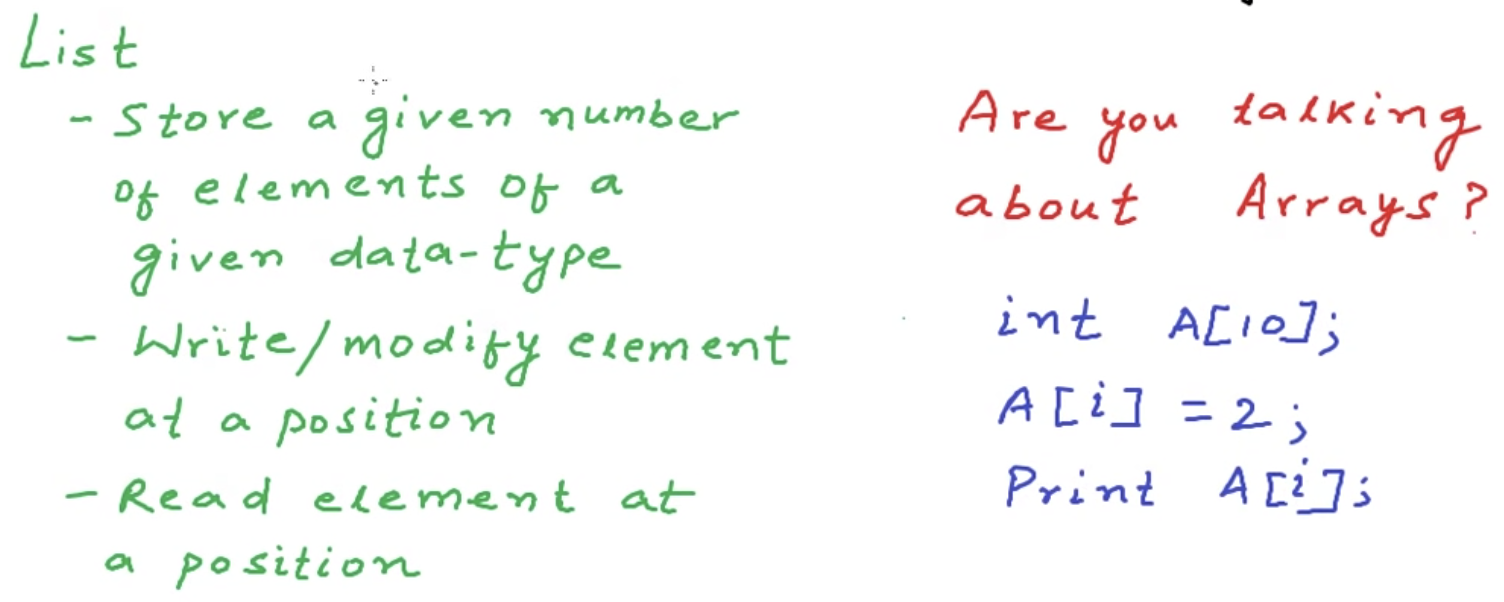 List
- Store a given number
of elements of a
given data-type
- Write/modify element
at a position
- Read element at
a position
Are you talking
about Arrays?
int A[10];
A[i] = 2;
Print A[i];